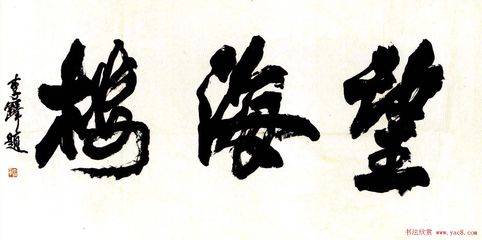 望海楼
李鐸題
书法欣赏 www.yac8.com